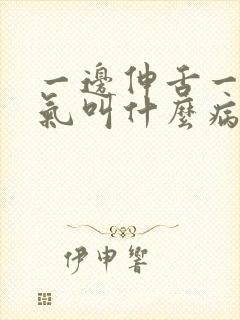 一邊伸舌一
氣叫什麼病
伊申響